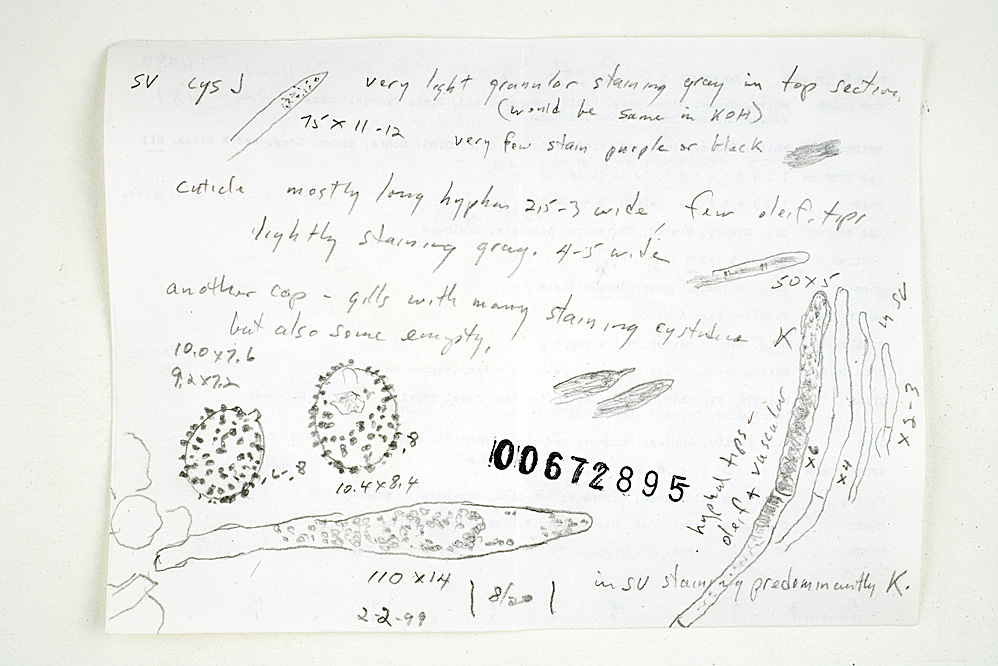 SV cys
very light granular staining gray in top section,
(would be same in KOH)
75 x 11-12
very few stain purple or black
cuticle mostly long hyphae 2.5-3 wide, few oleif. tips
lightly staining gray. 4-5 wide
50x5
another cap - gills with many staining cystidia K
but also some empty,
10.0x7.6
9.2x7.2
.8
.6-.8
10.4x8.4
00672895
hyphal tips -
oleif + vascular
x6
x4
x2-3
in SV
110 x 14
8/20
2-2-99
in SV staining predominantly K.